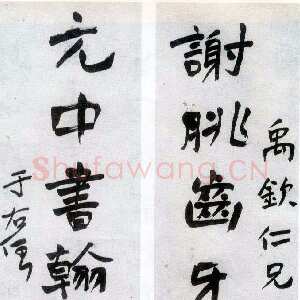 禹欽仁兄
謝朓齒牙
元中書翰
于右
Shufawang.CN